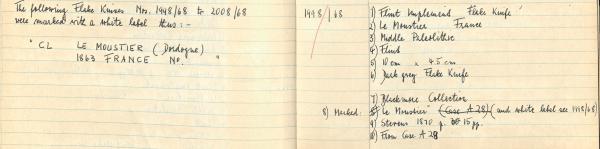 The following Flake Knives. Nos. 1998/68 to 2008/68
were marked with a white label thus :-
"CL LE MOUSTIER (Dordogne)
1863 FRANCE No. "
1998/68
1) Flint Implement. 'Flake Knife'
2) Le Moustier France
3) Middle Paleolithic
4) Flint
5) 10 cm x 4.5 cm
6) Dark grey Flake Knife
7) Blackmore Collection
8) Marked: "Le Moustier" (Case A 28) (and white label see 1998/68)
9) Stevens 1870 p. 15 pg.
10) From Case A 28